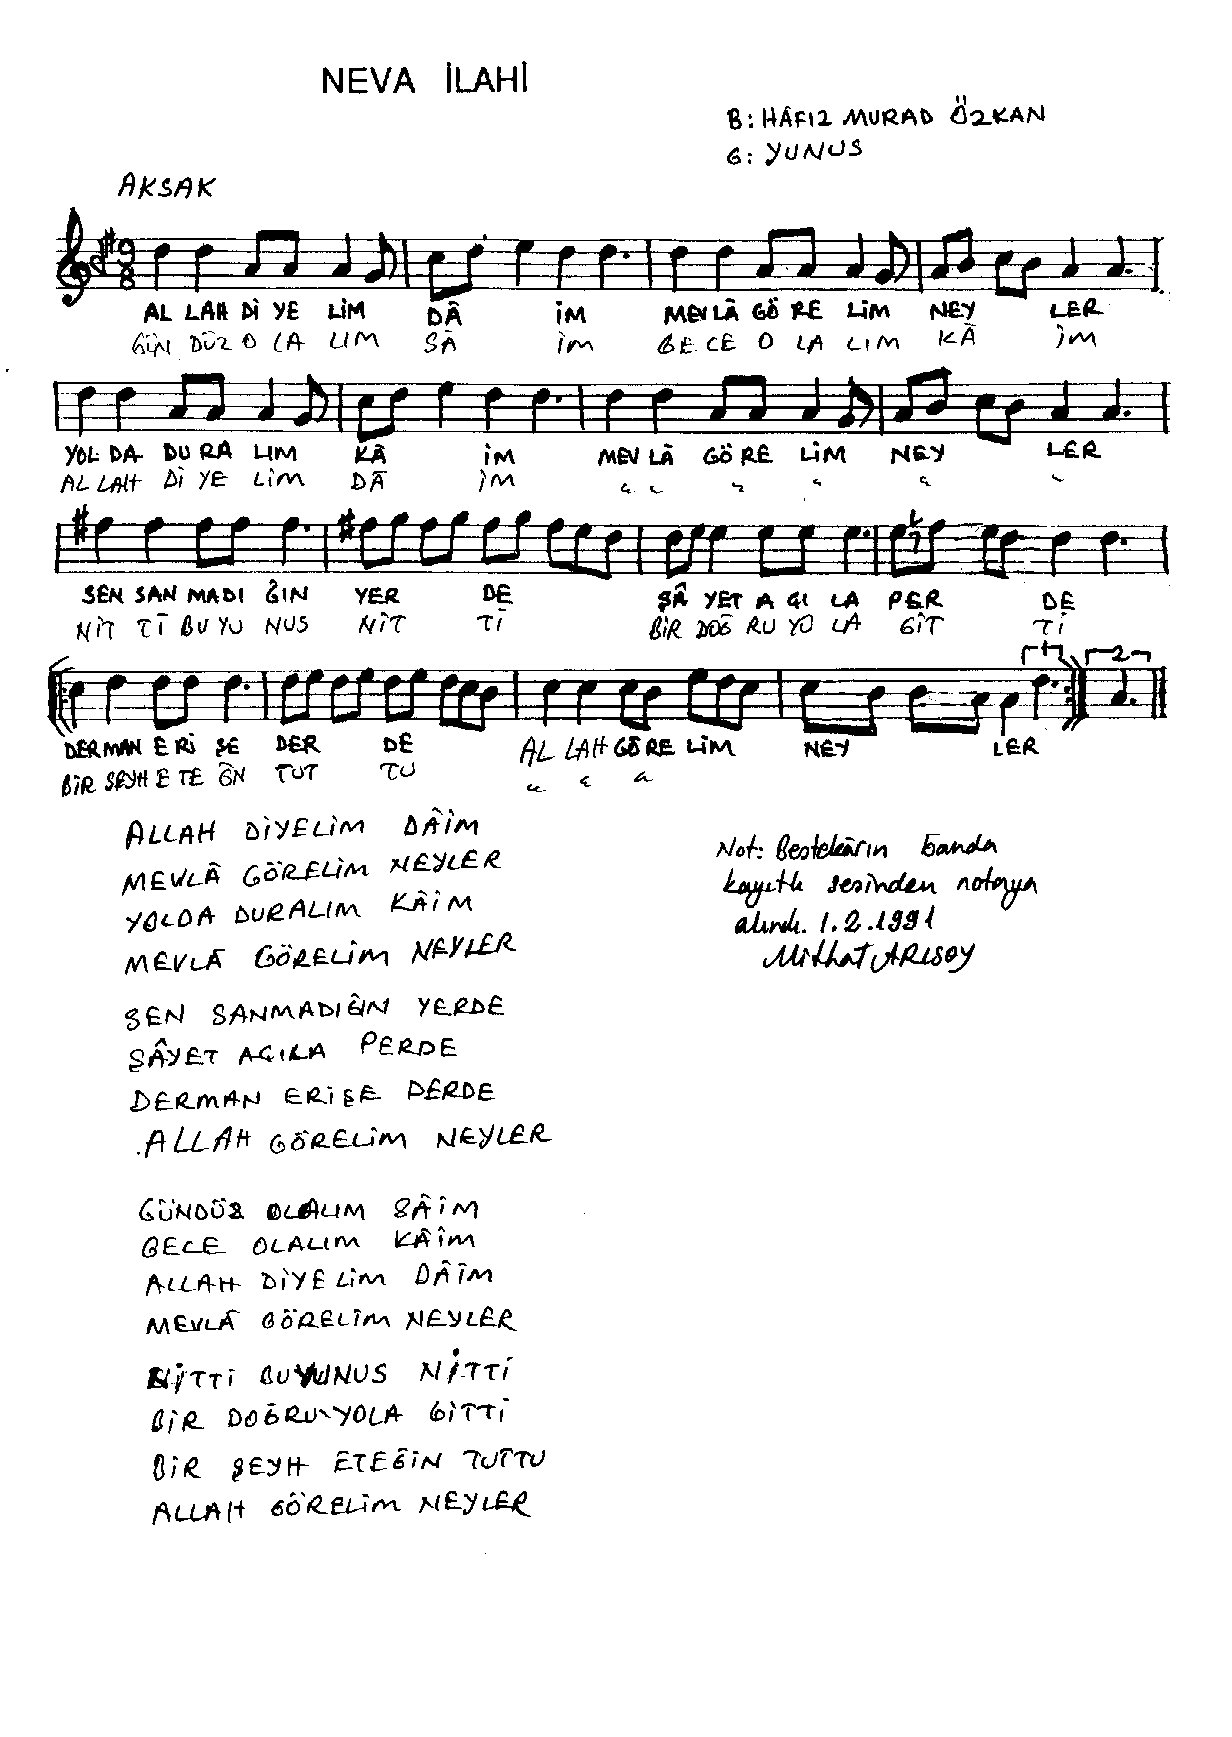 NEVA İLAHİ
B: HÂFIZ MURAD ÖZKAN
G: YUNUS
AKSAK
9
8
AL LAH Dİ YE LİM DÂ İM MEV LÂ GÖ RE LİM NEY LER
GÜN DÜZ O LA LIM SÂ İM GE CE O LA LIM KÂ İM
YOL DA DU RA LIM KÂ İM MEV LÂ GÖ RE LİM NEY LER
AL LAH Dİ YE LİM DÂ İM " " " " " "
SEN SAN MADI ĞIN YER DE ŞÂ YET A ÇI LA PER DE
NİT Tİ BU YU NUS NİT Tİ BİR DOĞ RU YO LA GİT Tİ
1 2
DERMAN E Rİ ŞE DER DE AL LAH GÖ RE LİM NEY LER
BİR ŞEYH E TE ĞİN TUT TU " " "
ALLAH DİYELİM DÂİM
MEVLÂ GÖRELİM NEYLER
YOLDA DURALIM KÂİM
MEVLÂ GÖRELİM NEYLER
SEN SANMADIĞIN YERDE
ŞÂYET AÇILA PERDE
DERMAN ERİŞE DERDE
ALLAH GÖRELİM NEYLER
GÜNDÜZ OLALIM SÂİM
GECE OLALIM KÂİM
ALLAH DİYELİM DÂİM
MEVLÂ GÖRELİM NEYLER
NİTTİ BU YUNUS NİTTİ
BİR DOĞRU YOLA GİTTİ
BİR ŞEYH ETEĞİN TUTTU
ALLAH GÖRELİM NEYLER
Not: Bestekârın banda
kayıtlı sesinden notaya
alındı. 1.2.1991
Mithat ARISOY